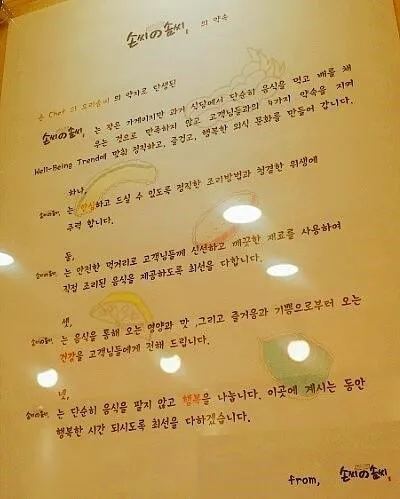 손씨의 솜씨, 의 약속
손 Chef 의 요리솜씨 의 약자로 탄생된
손씨의 솜씨, 는 작은 가게이지만 과거 식당에서 단순히 음식을 먹고 배를 채
우는 것으로 만족하지 않고 고객님들과의 4가지 약속을 지켜
Well-Being Trend에 맞춰 정직하고, 즐겁고, 행복한 외식 문화를 만들어 갑니다.
하나,
손씨의 솜씨, 는 안심하고 드실 수 있도록 정직한 조리방법과 청결한 위생에
주력 합니다.
둘,
손씨의 솜씨, 는 안전한 먹거리로 고객님들께 신선하고 깨끗한 재료를 사용하여
직접 조리된 음식을 제공하도록 최선을 다합니다.
셋,
손씨의 솜씨, 는 음식을 통해 오는 영양과 맛 ,그리고 즐거움과 기쁨으로부터 오는
건강을 고객님들에게 전해 드립니다.
넷,
손씨의 솜씨, 는 단순히 음식을 팔지 않고 행복을 나눕니다. 이곳에 계시는 동안
행복한 시간 되시도록 최선을 다하겠습니다.
from, 손씨의 솜씨,